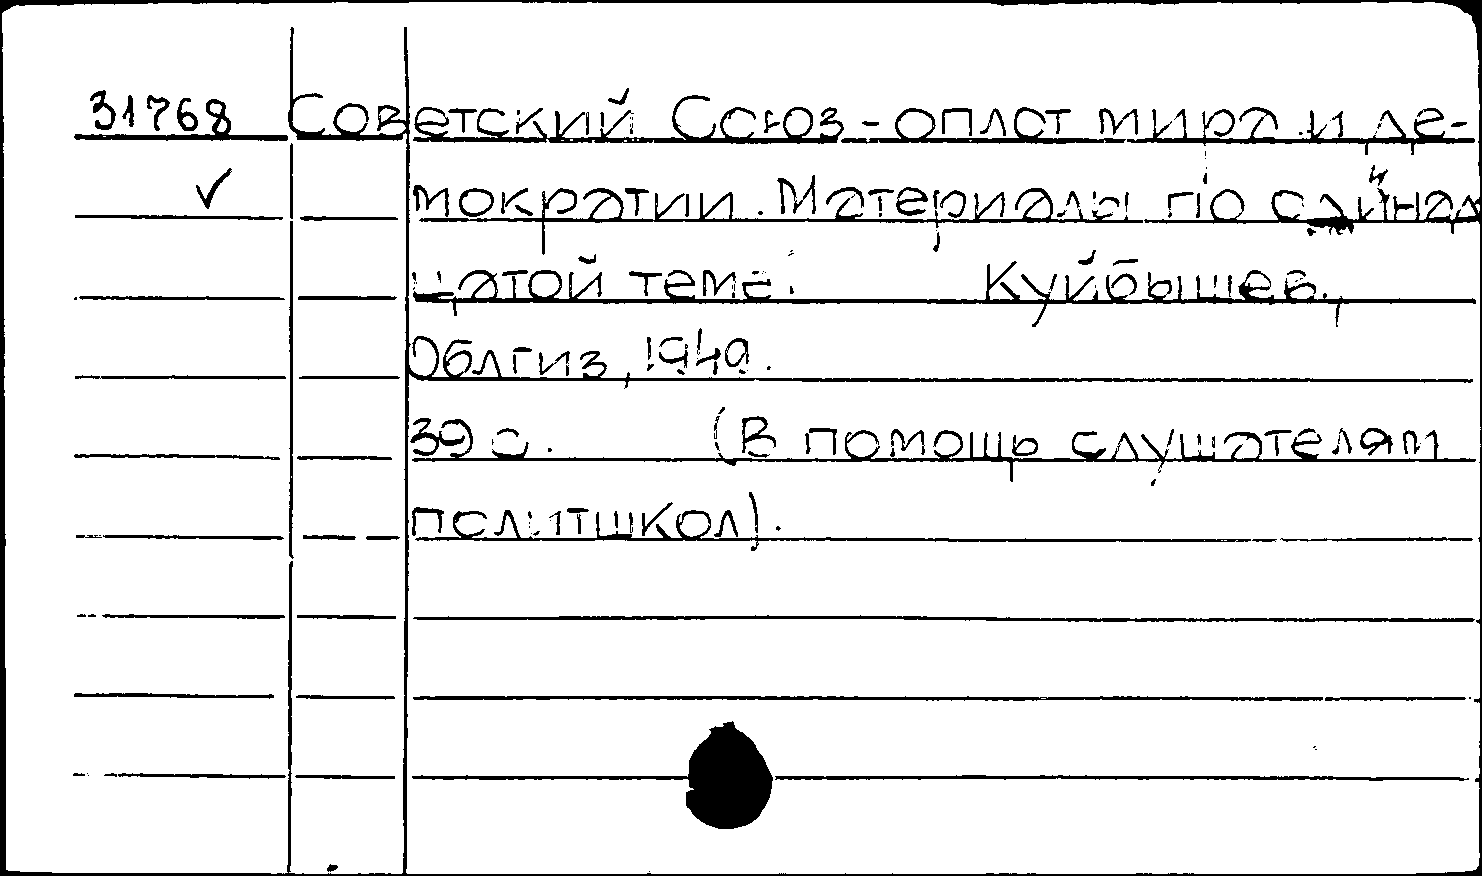 31768 Советский Союз - оплот мира и де-
✓ мократии. Материалы по
цатой теме. Куйбышев,
Облгиз, 1949.
39 с. (В помощь слушателям
политшкол).